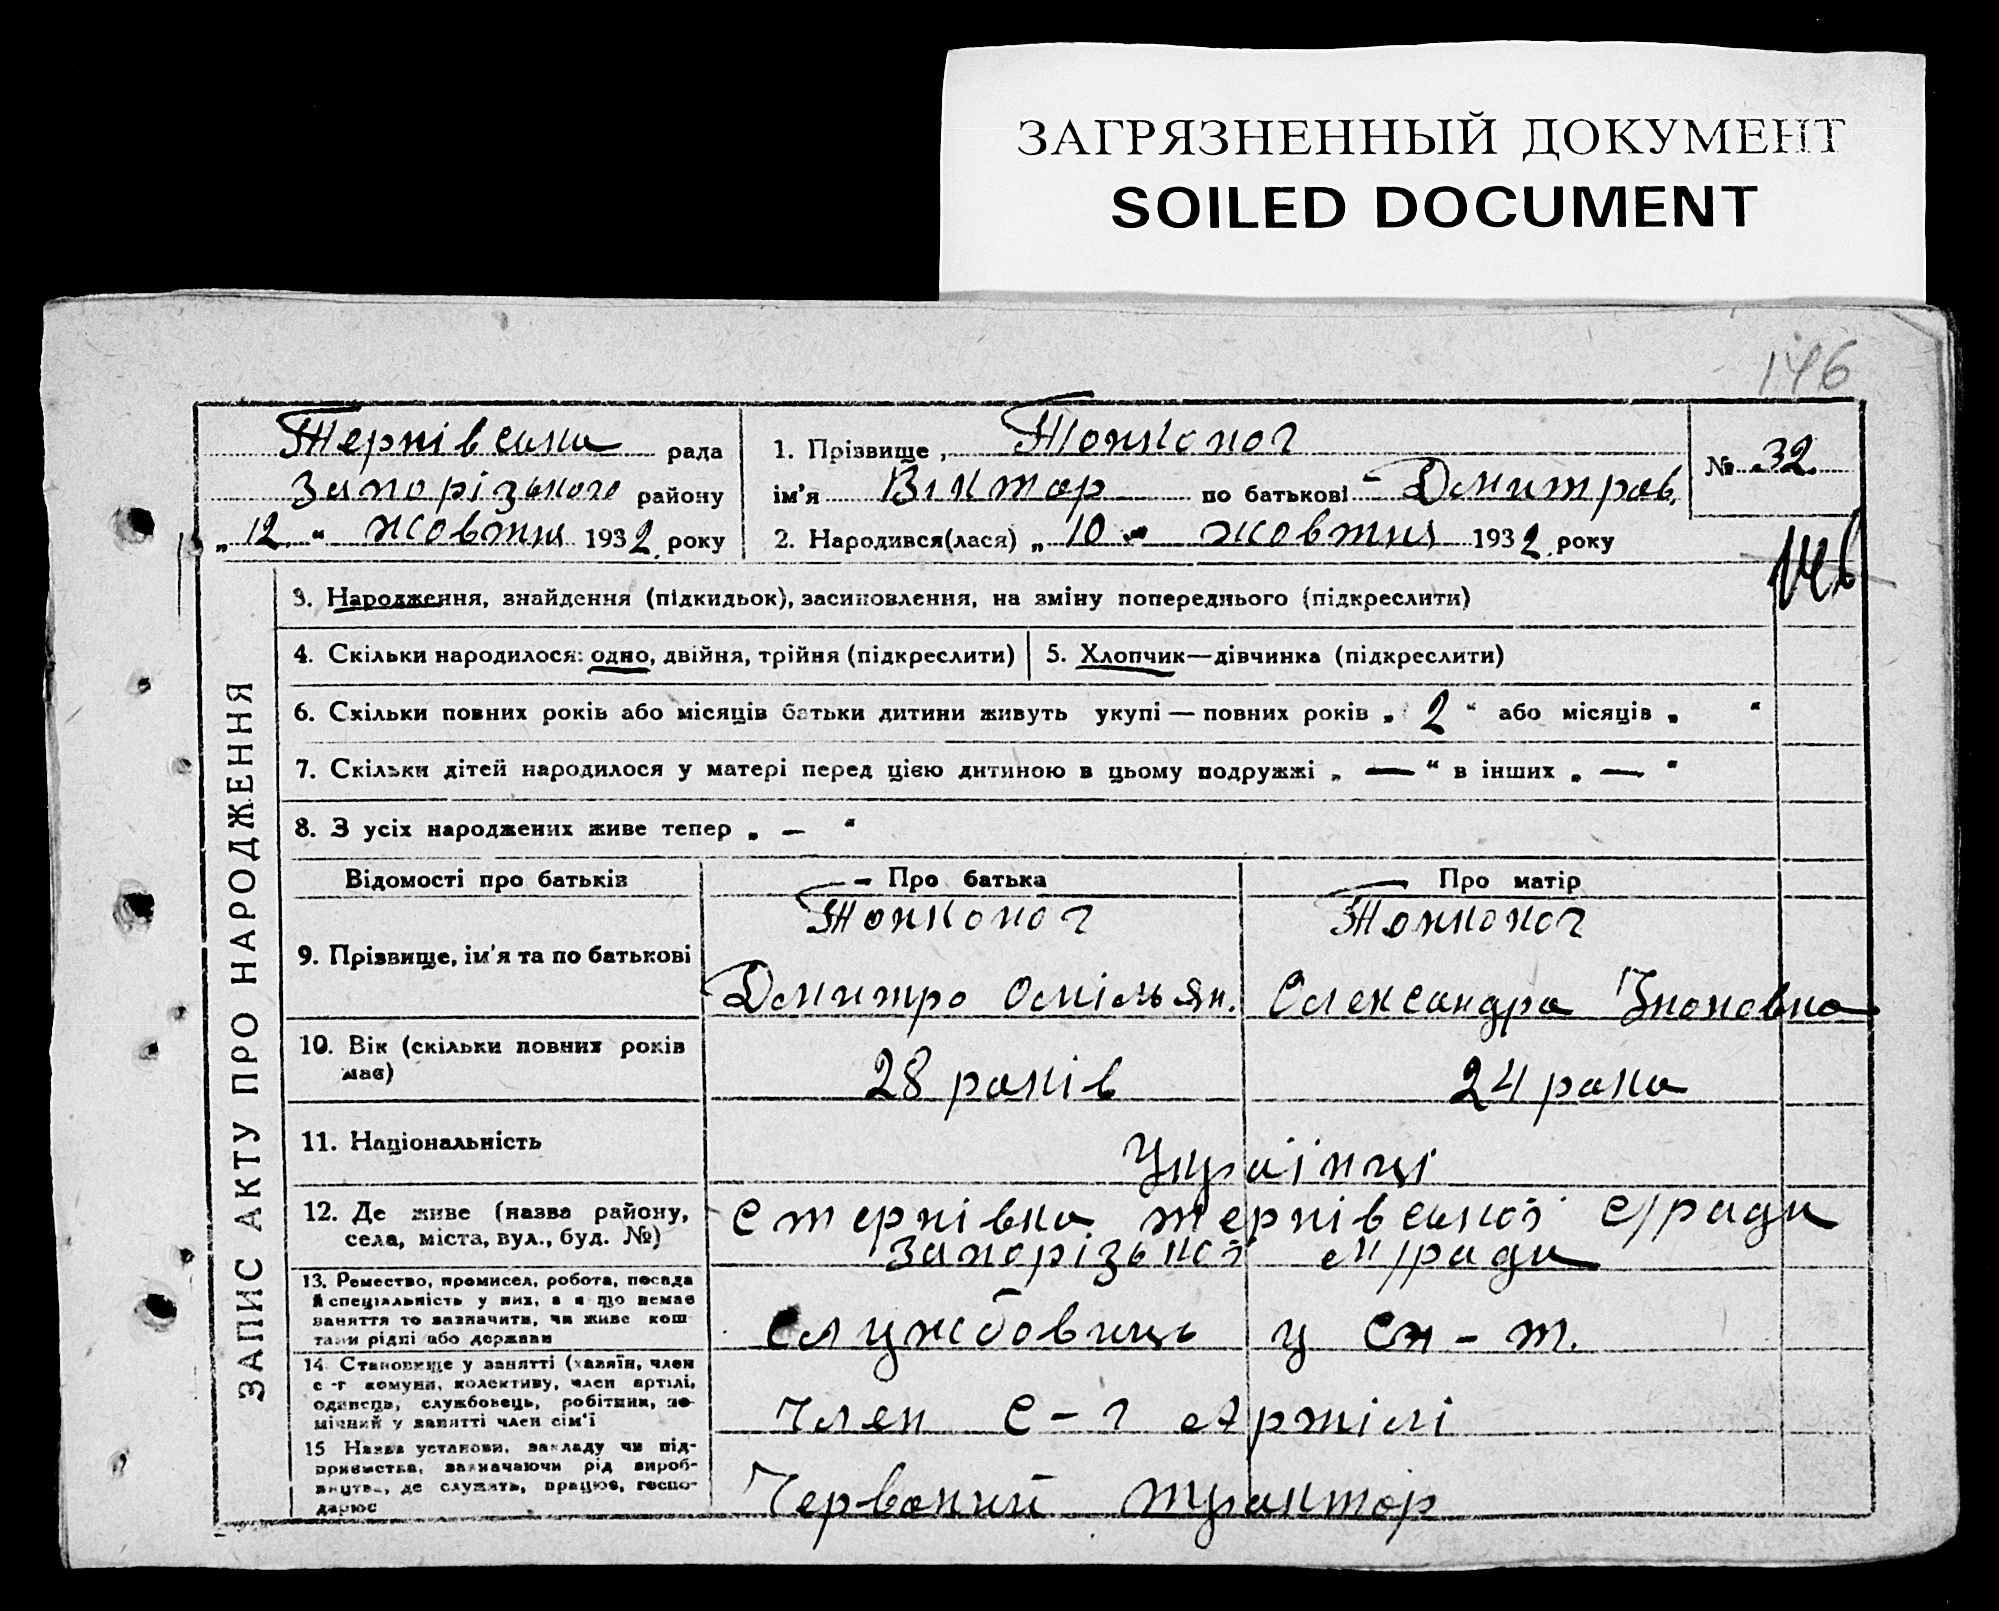 ЗАГРЯЗНЕННЫЙ ДОКУМЕНТ
SOILED DOCUMENT
146
Тернівська рада
Запорізького району
„12“ жовтня 1932 року
1. Прізвище Тонконог
ім'я Віктор по батькові Дмитров.
2. Народився(лася) „10“ жовтня 1932 року
№ 32
146
ЗАПИС АКТУ ПРО НАРОДЖЕННЯ
3. Народження, знайдення (підкидьок), засиновлення, на зміну попереднього (підкреслити)
4. Скільки народилося: одно, двійня, трійня (підкреслити)
5. Хлопчик—дівчинка (підкреслити)
6. Скільки повних років або місяців батьки дитини живуть укупі — повних років „2“ або місяців „ “
7. Скільки дітей народилося у матері перед цією дитиною в цьому подружжі „—“ в інших „—“
8. З усіх народжених живе тепер „—“
Відомості про батьків
Про батька
Про матір
9. Прізвище, ім'я та по батькові
Тонконог
Дмитро Омільян.
Тонконог
Олександра
10. Вік (скільки повних років
має)
28 років
24 роки
11. Національність
Українці
12. Де живе (назва району,
села, міста, вул., буд. №)
с тернівка тернівської с/ради
Запорізької м/ради
13. Ремество, промисел, робота, посада
й спеціяльність у них, а якщо немає
заняття то зазначити, чи живе кош
тами рідні або держави
Службовиць у
14. Становище у занятті (хазяїн, член
с-г комуни, колективу, член артілі,
одинець, службовець, робітник, по-
мічний у занятті член сім'ї
Член с-г Артілі
15 Назва установи, закладу чи під-
приємства, зазначаючи рід вироб-
ництва, де служить, працює, госпо-
дарює
Червоний трактор